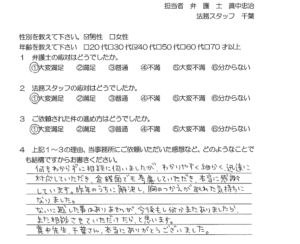 担当者 弁 護 士 真中忠治
法務スタッフ 千葉
性別を教えて下さい。☑男性 □女性
年齢を教えて下さい □20代□30代☑40代□50代□60代□70才以上
1 弁護士の応対はどうでしたか。
①大変満足 ②満足 ③普通 ④不満 ⑤大変不満 ⑥分からない
2 法務スタッフの応対はどうでしたか。
①大変満足 ②満足 ③普通 ④不満 ⑤大変不満 ⑥分からない
3 ご依頼された件の進め方はどうでしたか。
①大変満足 ②満足 ③普通 ④不満 ⑤大変不満 ⑥分からない
4 上記1～3の理由、当事務所にご依頼いただいた感想など、どのようなことで
も結構ですからお書きください。
何もわからずに相談に伺いましたが、わかりやすく細かく迅速に
対応していただき、金銭面でも考慮していただき、本当に感謝
しています。昨年のうちに解決し、胸のつかえが取れた気持ちに
なりました。
ないに越した事はありませんが、今後もし何かまたありましたら、
また相談させていただけたらと思います。
真中先生、千葉さん、本当にありがとうございました。